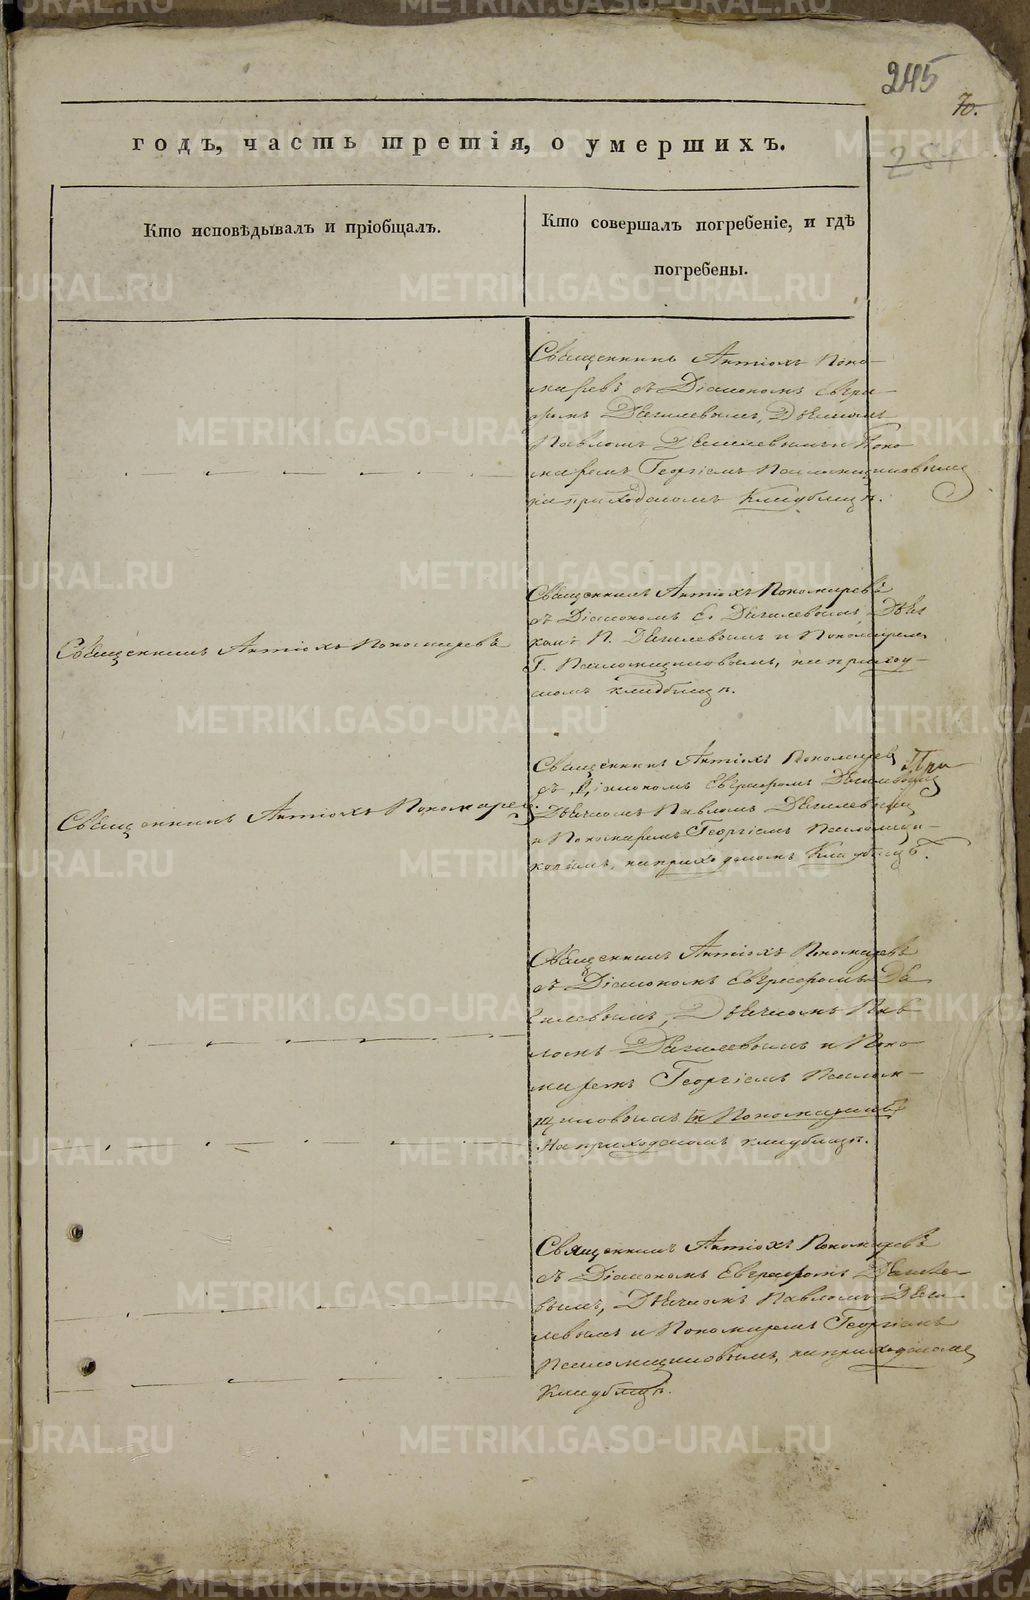 245
70.
251
годъ, часть третія, о умершихъ.
Кто исповѣдывалъ и пріобщалъ.
Кто совершалъ погребеніе, и гдѣ
погребены.
Священникъ Антіохъ Поно-
маревъ съ Діакономъ Евгра-
фомъ Дягилевымъ, Дьячкомъ
Павломъ Дягилевымъ и Поно-
маремъ Георгіемъ
на приходскомъ Кладбищѣ.
Священникъ Антіохъ Пономаревъ
Священникъ Антіохъ Пономаревъ
съ Діакономъ Е. Дягилевымъ, Дьяч
комъ П. Дягилевымъ и Пономаремъ
Г. на приход-
скомъ кладбищѣ.
Священникъ Антіохъ Пономарев.
Священникъ Антіохъ Пономарев
съ Діакономъ Евграфомъ Дягилевым
Дьячкомъ Павломъ Дягилевым
и Пономаремъ Георгіемъ
на приходскомъ Кладбищѣ.
Три
Священникъ Антіохъ Пономаревъ
съ Діакономъ Евграфомъ Дя
гилевымъ, Дьячкомъ Пав
ломъ Дягилевымъ и Поно
маремъ Георгіемъ
и Пономаремъ
На приходскомъ кладбищѣ.
Священникъ Антіохъ Пономаревъ
съ Діакономъ Евграфомъ Дягиле-
вымъ, Дьячкомъ Павломъ Дяги-
левымъ и Пономаремъ Георгіемъ
на приходскомъ
Кладбищѣ.
METRIKI.GASO-URAL.RU